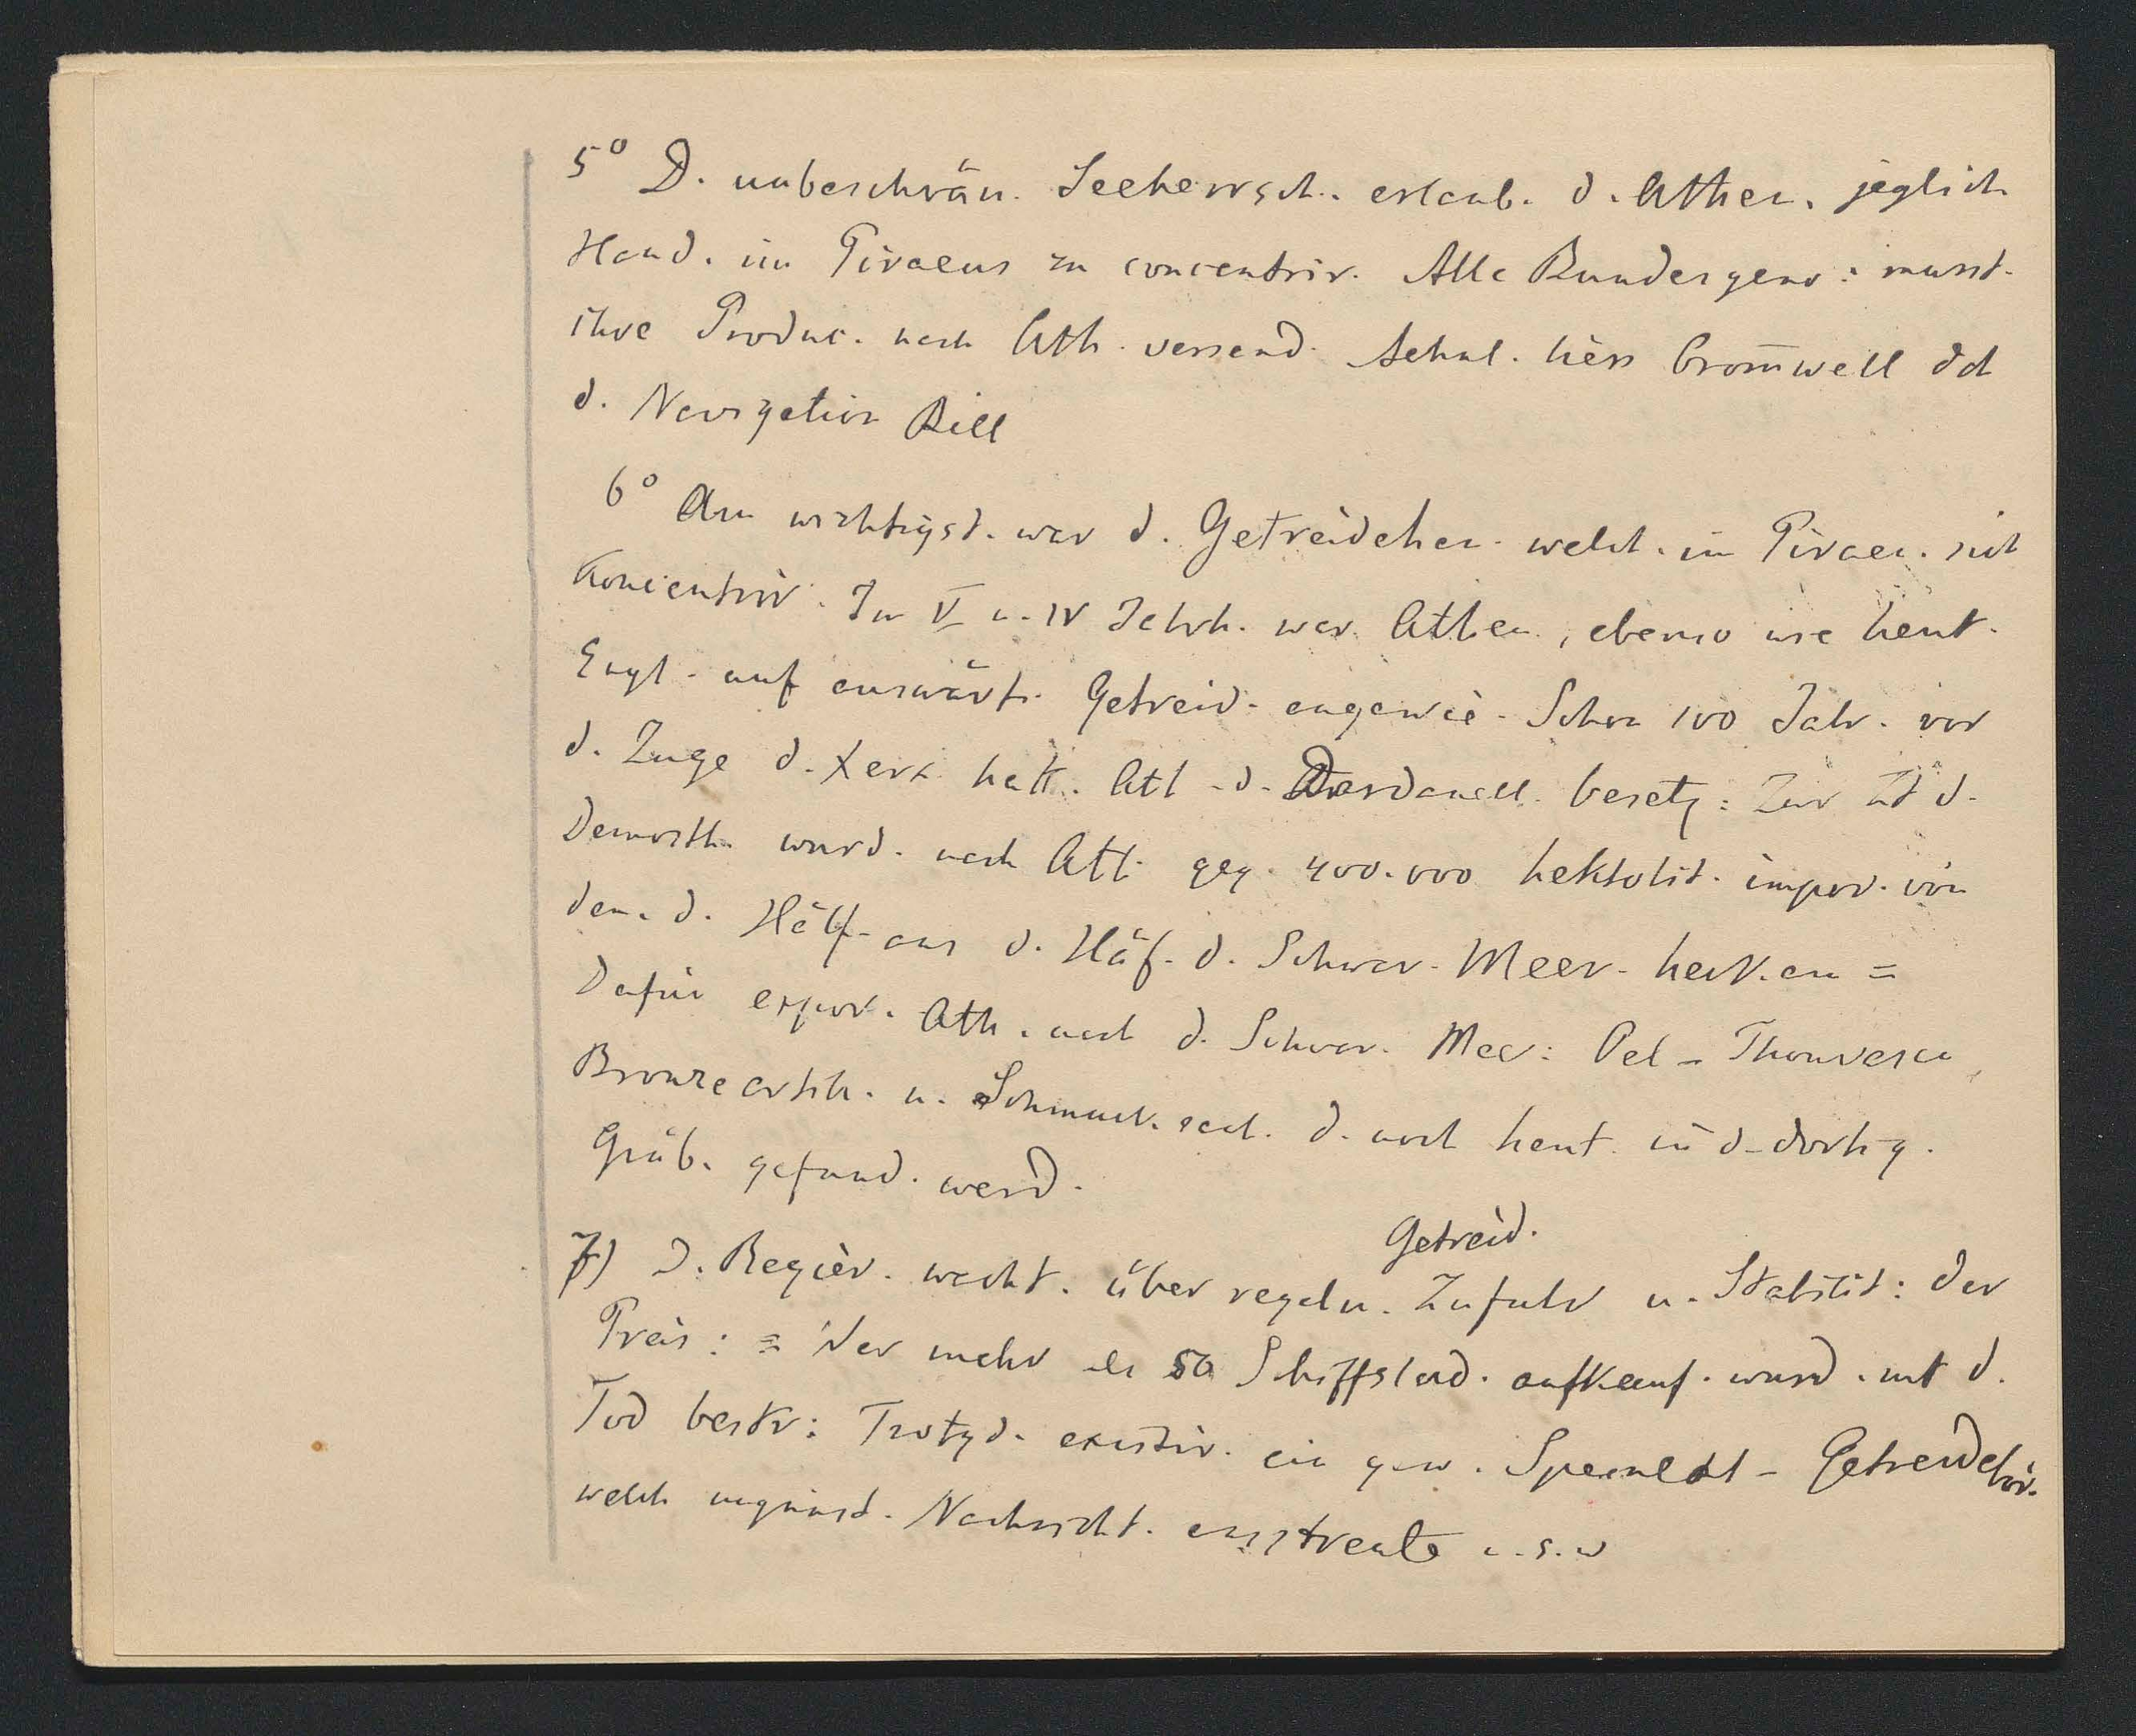 5° D. unbeschrän. Seeherrsch. erlaub. d. Athen. jeglich
Hand. im Piraeus zu concentrir. Alle Bundesgeno: musst.
ihre Produc. nach Ath. versend. Aehnl. liess Cromwell dch
d. Navigation Bill
6° Am wichtigst. war d. Getreidehan. welch. im Piraeu. sich
koncentrir. Im V u. IV Jahrh. war Athen, ebenso wie heut.
Engl. auf auswärt. Getreid. angewie. Schon 100 Jahr. vor
d. Zuge d. Xerx. hatt. Ath. d. Dardanell. besetz: Zur Zt d.
Demosth. wurd. nach Ath. geg. 400.000 hektolit. impor. von
den. d. Hälf. aus d. Häf. d. Schwar. Meer. herk. =
Dafür expor. Ath. nach d. Schwar. Mee: Oel - Thonvasen,
Bronzeartik. u. Schmuck. sach. d. noch heut. in d. dortig.
Gräb. gefund. werd.
Getreid.
7) D. Regier. wacht. über regeln. Zufuhr u. Stabilit: der
Preis: = Wer mehr als 50 Schiffslad. aufkauf. wurd. mit d.
Tod bestr: Trotzd. existir. ein gew. Getreidebör.
welch ungünst. Nachricht. ausstreute u.s.w